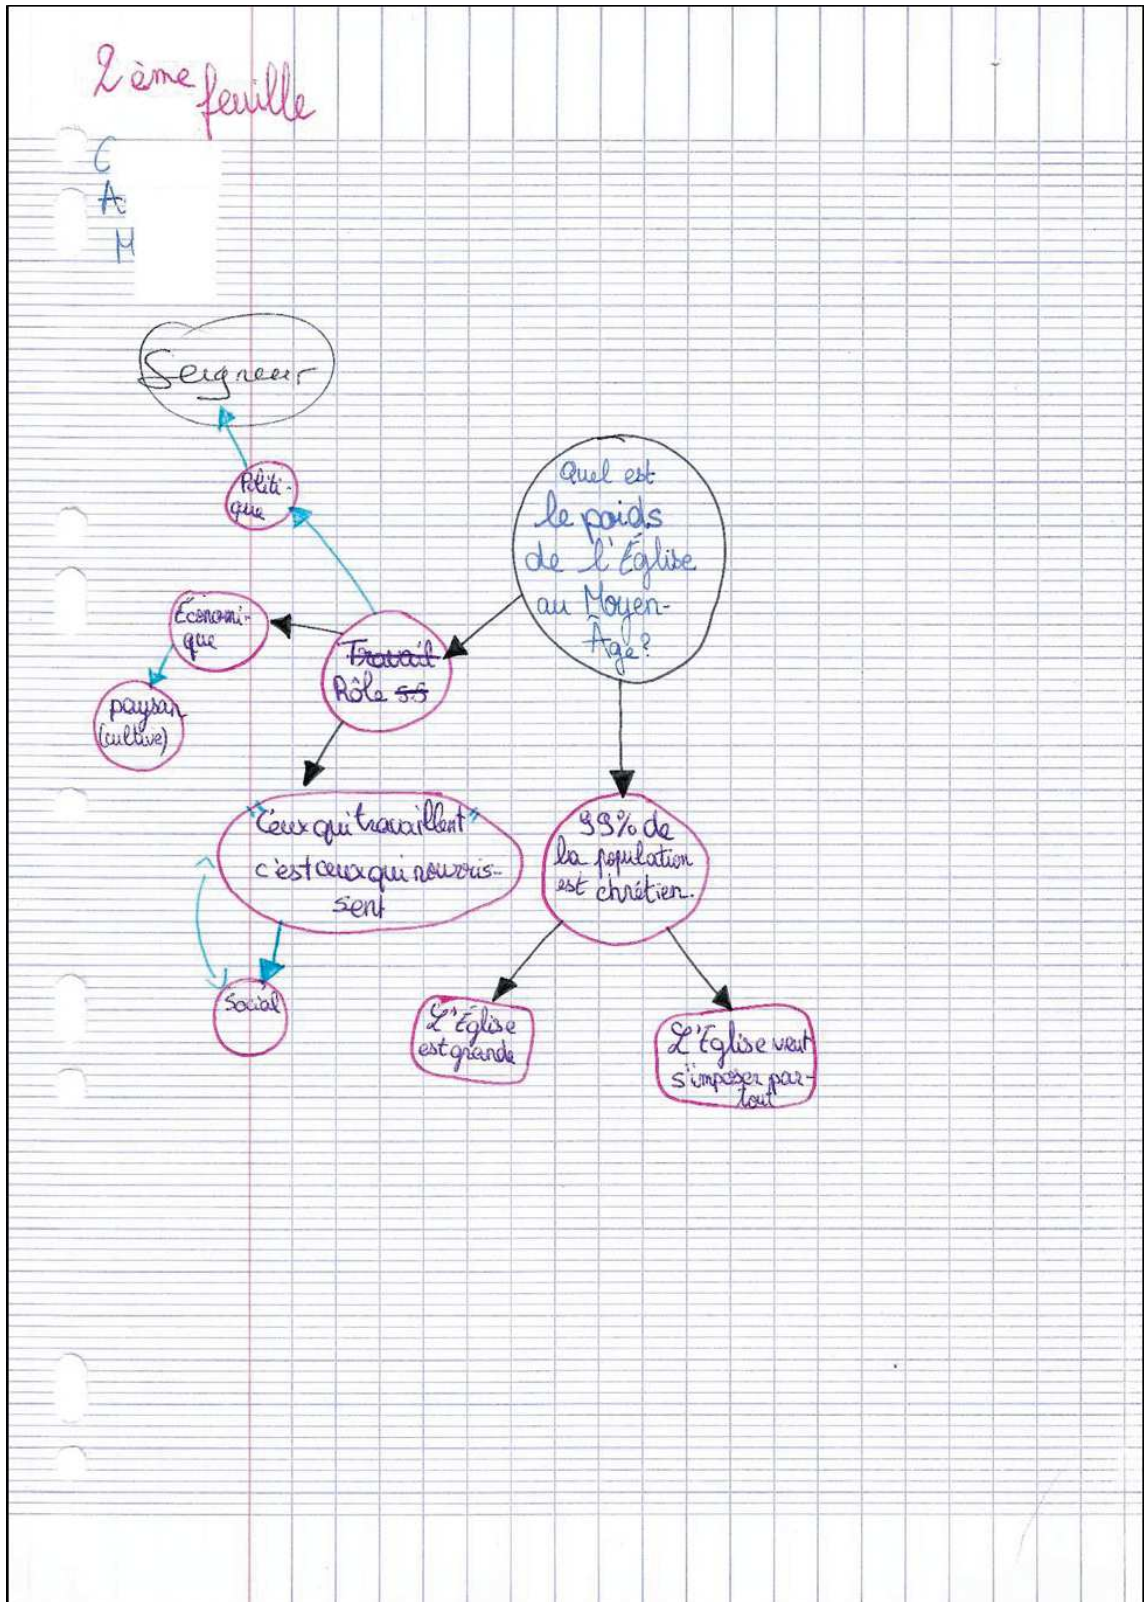 2ème
feuille
C
A
M
Seigneur
Politi-
que
Quel est
le poids
de l'Église
au Moyen-
Âge?
Économi-
que
Travail
Rôle
paysan
(cultive)
"Ceux qui travaillent"
c'est ceux qui nourris-
sent
99% de
la population
est chrétien.
Social
L'Église
est grande
L'Église veut
s'imposer par-
tout